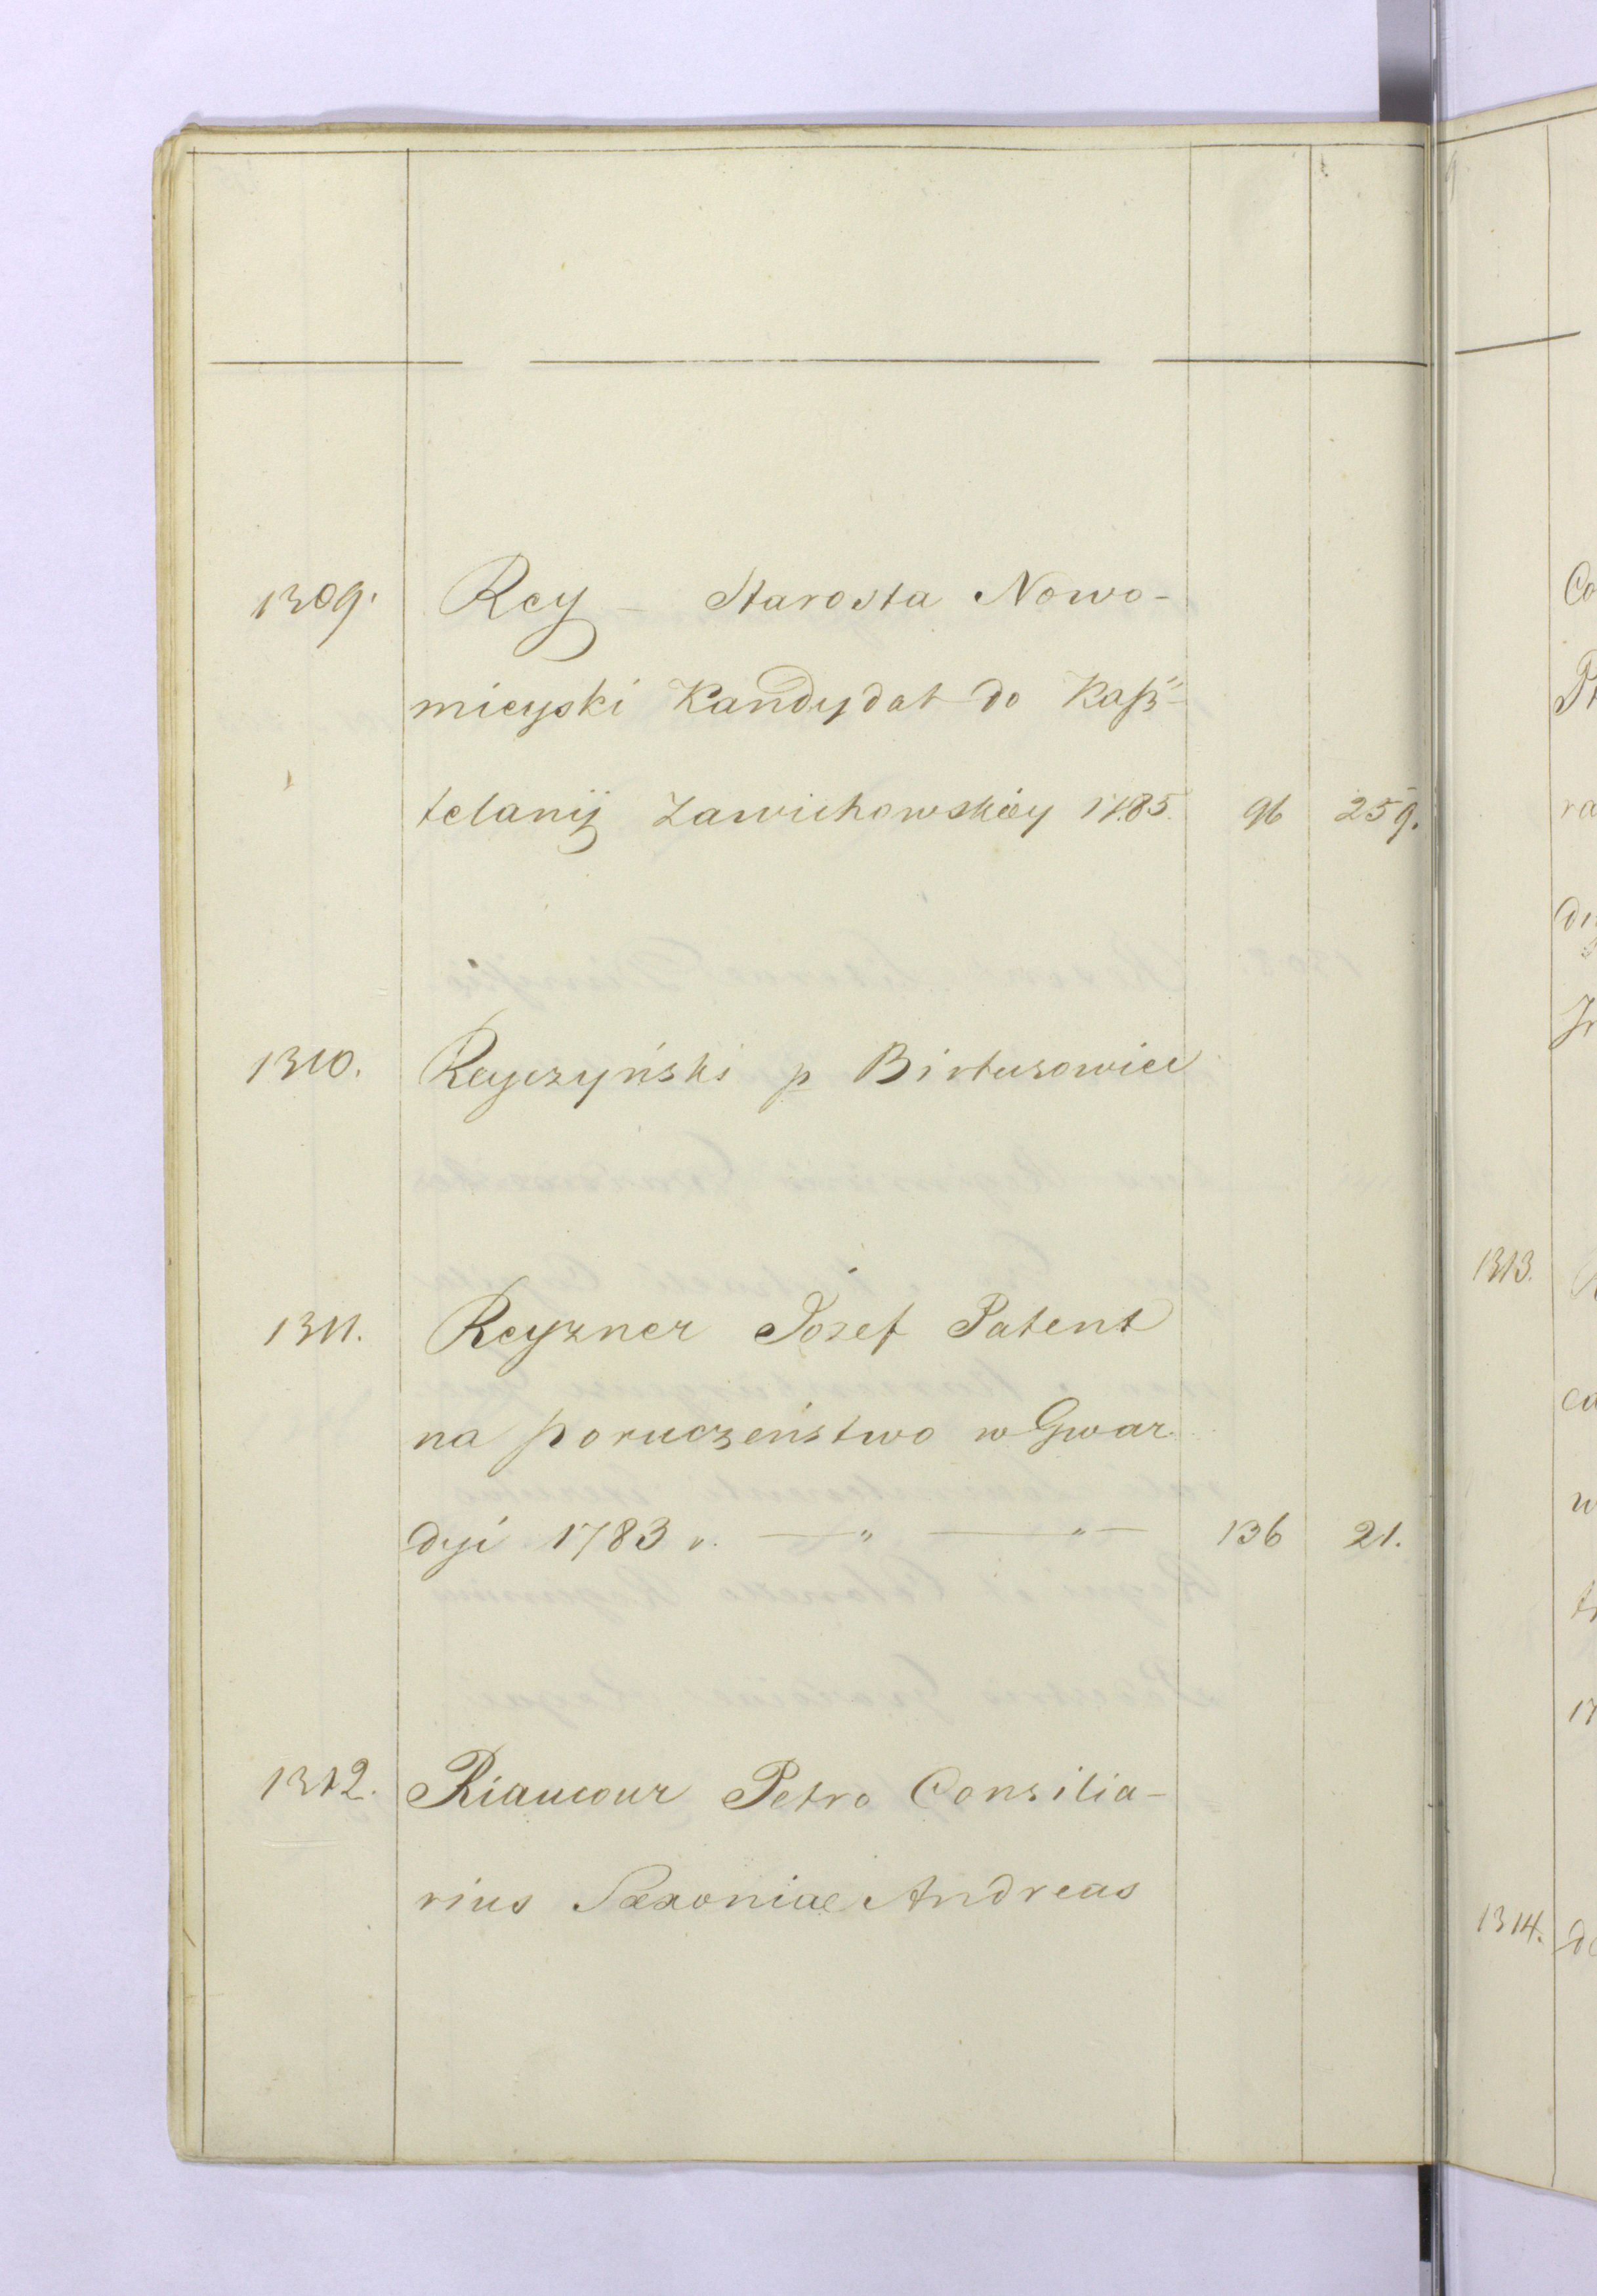 1309. Rey – Starosta Nowo-
mieyski Kandydat do Kasz-
telanij Zawichowskiéy 1785. 96 259.
1310. Reyczyński p Birtusowice
1311. Reyzner Józef Patent
na poruczeństwo w Gwar-
dyi 1783 r. — " — " — 136 21.
1312. Riaucour Petro Consilia-
rius Saxoniae Andreas
1313.
1314.